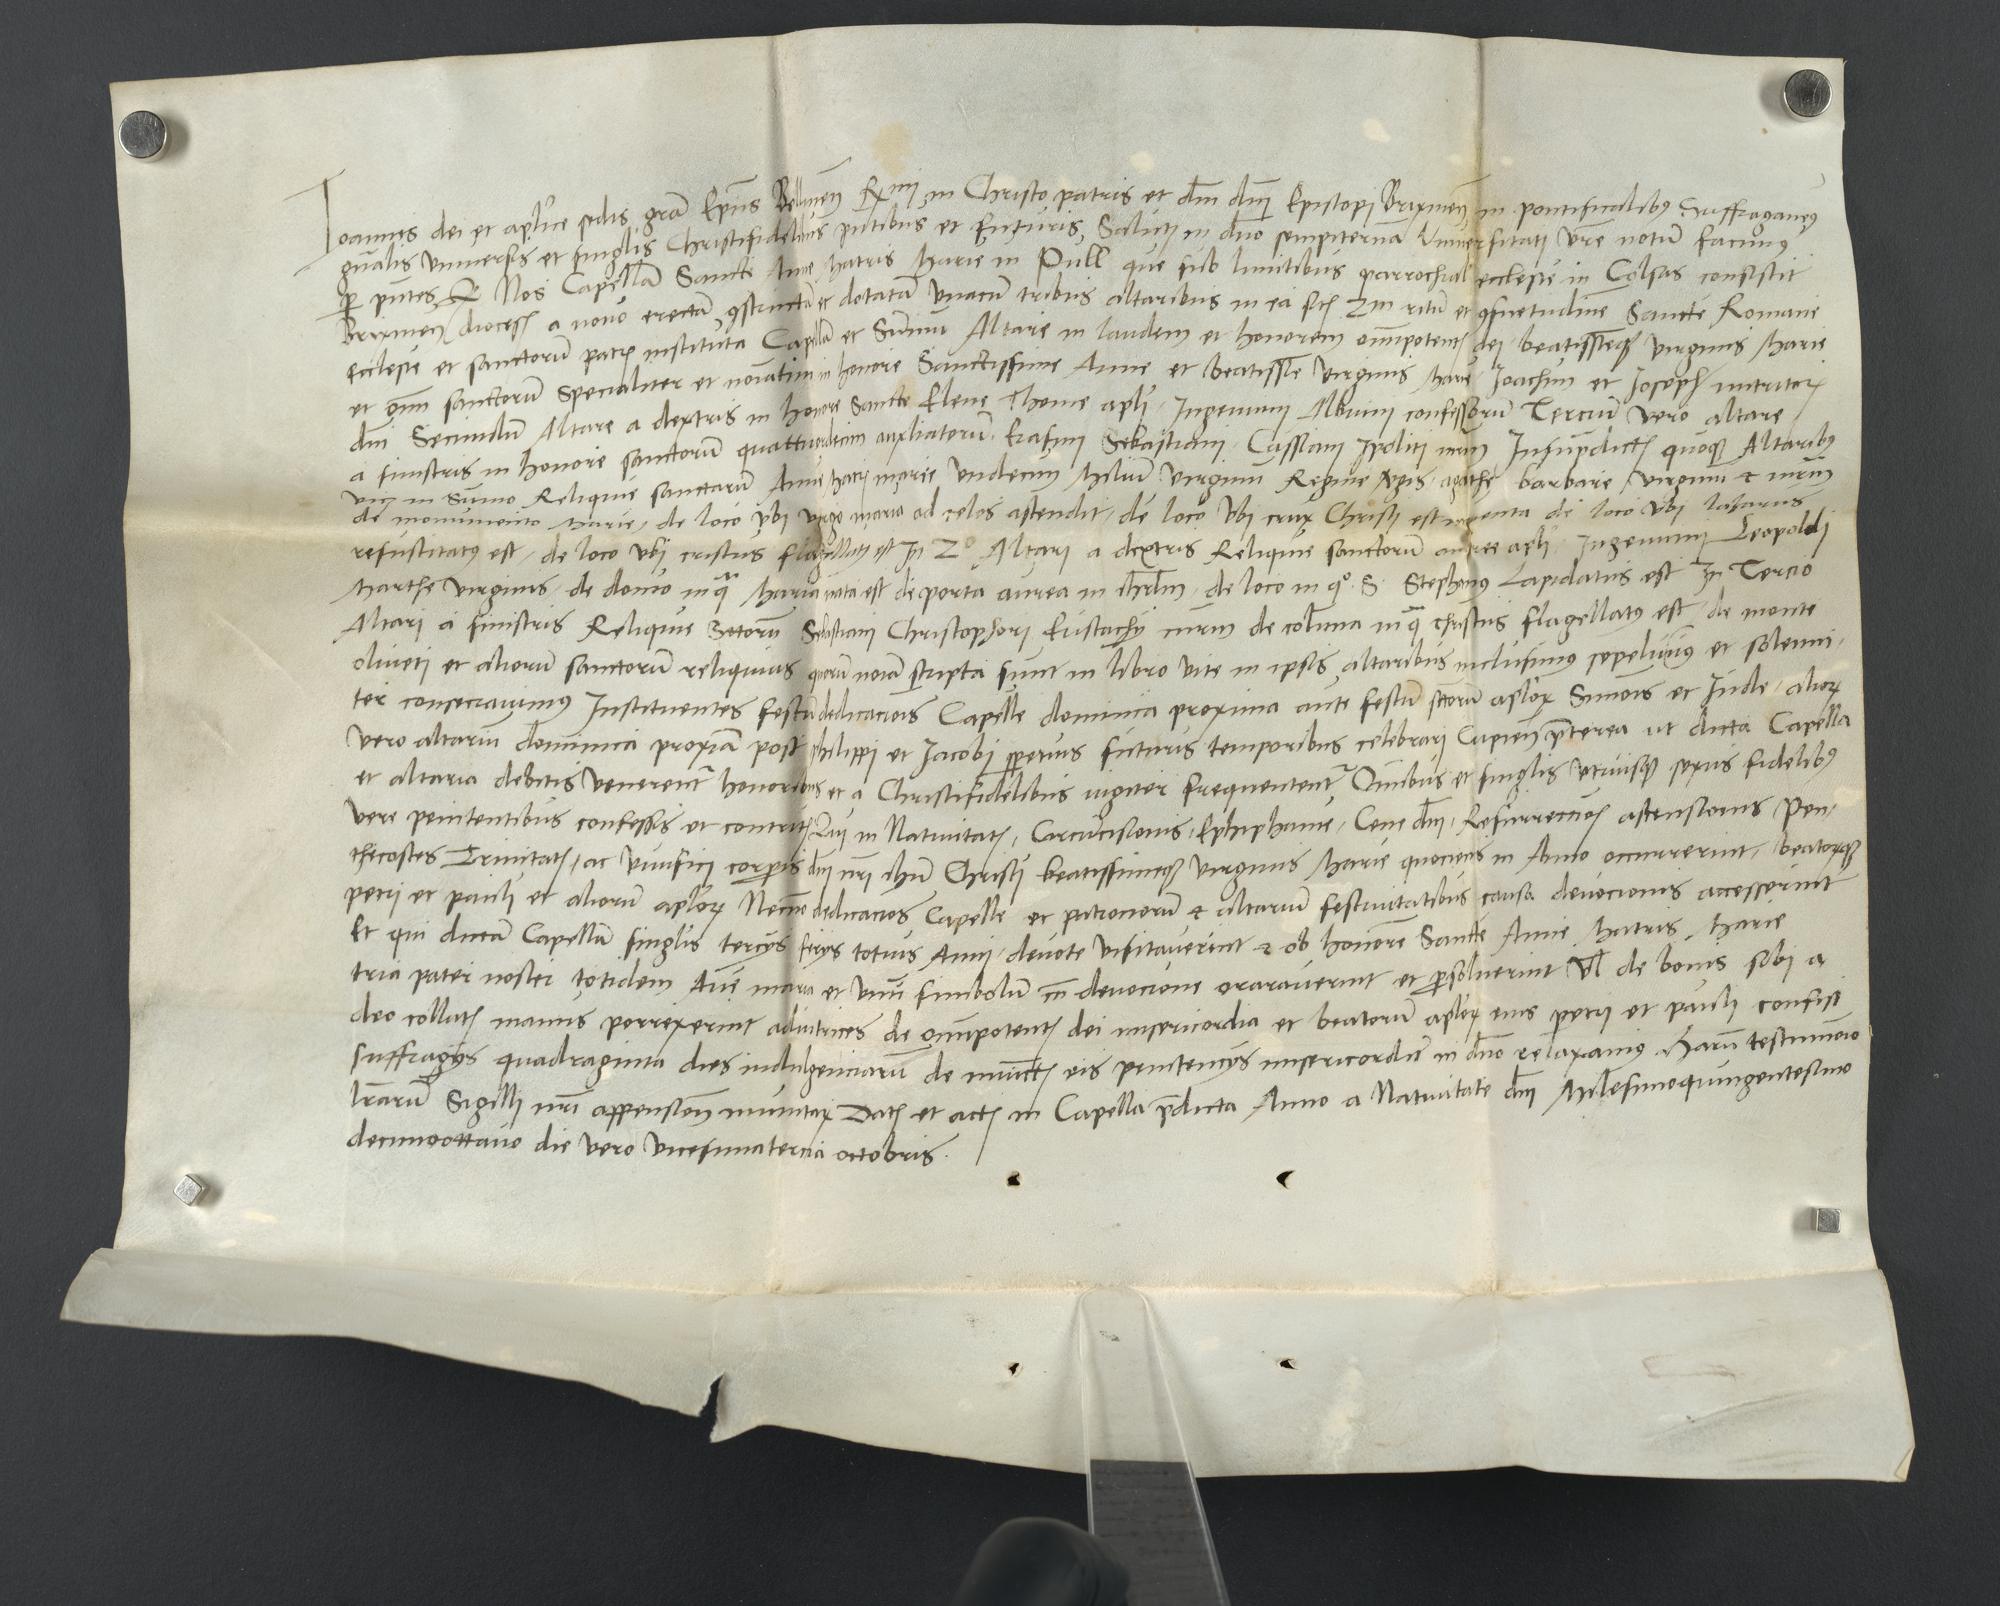 Joannes dei et aplice sedis gra Epus Bellinen Rmi in Christo patris et dni dni Epistopi Brixinen in pontificalibus Suffraganeus
gnalis universis et singlis Christifidelibus pntibus et futuris, Salute in dno sempiterna Universitati vre notum facimus
per pntes Nos Capella Sancte Anne Matris Marie in Pull que sub limitibus parrochial ecclesie in Colsas consistit
Brixinen dioces a novo erecta, constructa et dotata unacum tribus altaribus in ea ritum et consuetudine Sancte Romane
Ecclesie et sanctorum patrum instituta Capellam et Summu Altare in laudem et honorem omnipotentis dei beatissieque virginis Marie
et omn sanctorum specialiter et nominatim in honore Sanctissime Anne et beatissie virginis Marie Joachim et Joseph nutritoris
dni Secundum Altare a dextris in honore Sancte Elene Thome apli Ingenuini Albuini confessorum Tercium vero altare
a sinistris in honore sanctorum quattuordecim auxliatorum Erasmi Sebastiani Cassiani Ipoliti mrm Insupdictis quoque Altaribus
in Summo Reliquie sanctarum Anne Matris marie undecim Milium virginum Regine agathe barbare virginum et mrm
de monumento Marie, de loco ubi virgo maria ad celos ascendit, de loco ubi crux Christi est inventa de loco ubi lazarus
resuscitatus est, de loco ubi cristus flagellatus est In 2o Altari a dextris Reliquie sanctorum andree apli Ingenuini Leopoldi
Marthe virginis, de domo in qua Maria nata est de porta aurea in ihrlm, de loco in quo S. Stephanus Lapidatus est In Tercio
Altari a sinistris Reliquie Sctorum Sebastiani Christophori Eustachy mrm de coluna in qua christus flagellatus est, de monte
oliveti et aliorum sanctorum reliquias quorum noia scripta sunt in libro vite in ipsis altaribus inclusimus sepelivimus et solenni-
ter consecravimus Instituentes festum dedicacionis Capelle dominica proxima ante festum sctorum aplor Simonis et Jude, alior
vero altarium dominica proxia post philippi et Jacobi perpetuis futuris temporibus celebrari Cupientes preterea ut dicta Capella
et altaria debitis venerentur honoribus et a Christifidelibus iugiter frequententur Omnibus et singlis utriusque sexus fidelibus
vere penitentibus confessis et contritis Qui in Nativitatis, Circucisionis, Ephiphanie, Cene dni, Resurreccionis ascensionis, Pen-
thecostes Trinitatis, ac vivifici corporis dni nri ihu Christi beatissimeque virginis Marie quociens in Anno occurrerint, beatorque
petri et pauli et aliorum aplor Necno dedicacios Capelle et patronorum et altarium festivitatibus causa devocionis accesserint
Et qui dictam Capellam singlis tercys ferys totius Anni, devote visitaverint et ob honorem Sancte Anne Matris Marie
tria pater noster totidem Ave maria et unum simbolum cum devocione oraraverint et persolverint vel de bonis sibi a
deo collatis manus porrexerint adiutrices de omnipotentis dei misericordia et beatorum aplor eius petri et pauli confisi
suffragys quadraginta dies indulgenciarum de iniunctis eis penitencys misericorditer in dno relaxamus Harum testimonio
lrarum Sigilli nri appensione munitar Datis et actis in Capella predicta Anno a Nativitate dni Milesimoquingentesimo
decimooctavo die vero vicesimatercia octobris.